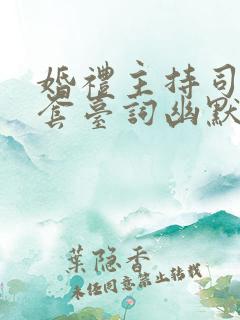 婚禮主持司
套臺詞幽默
葉隐香
未任同意禁止转载